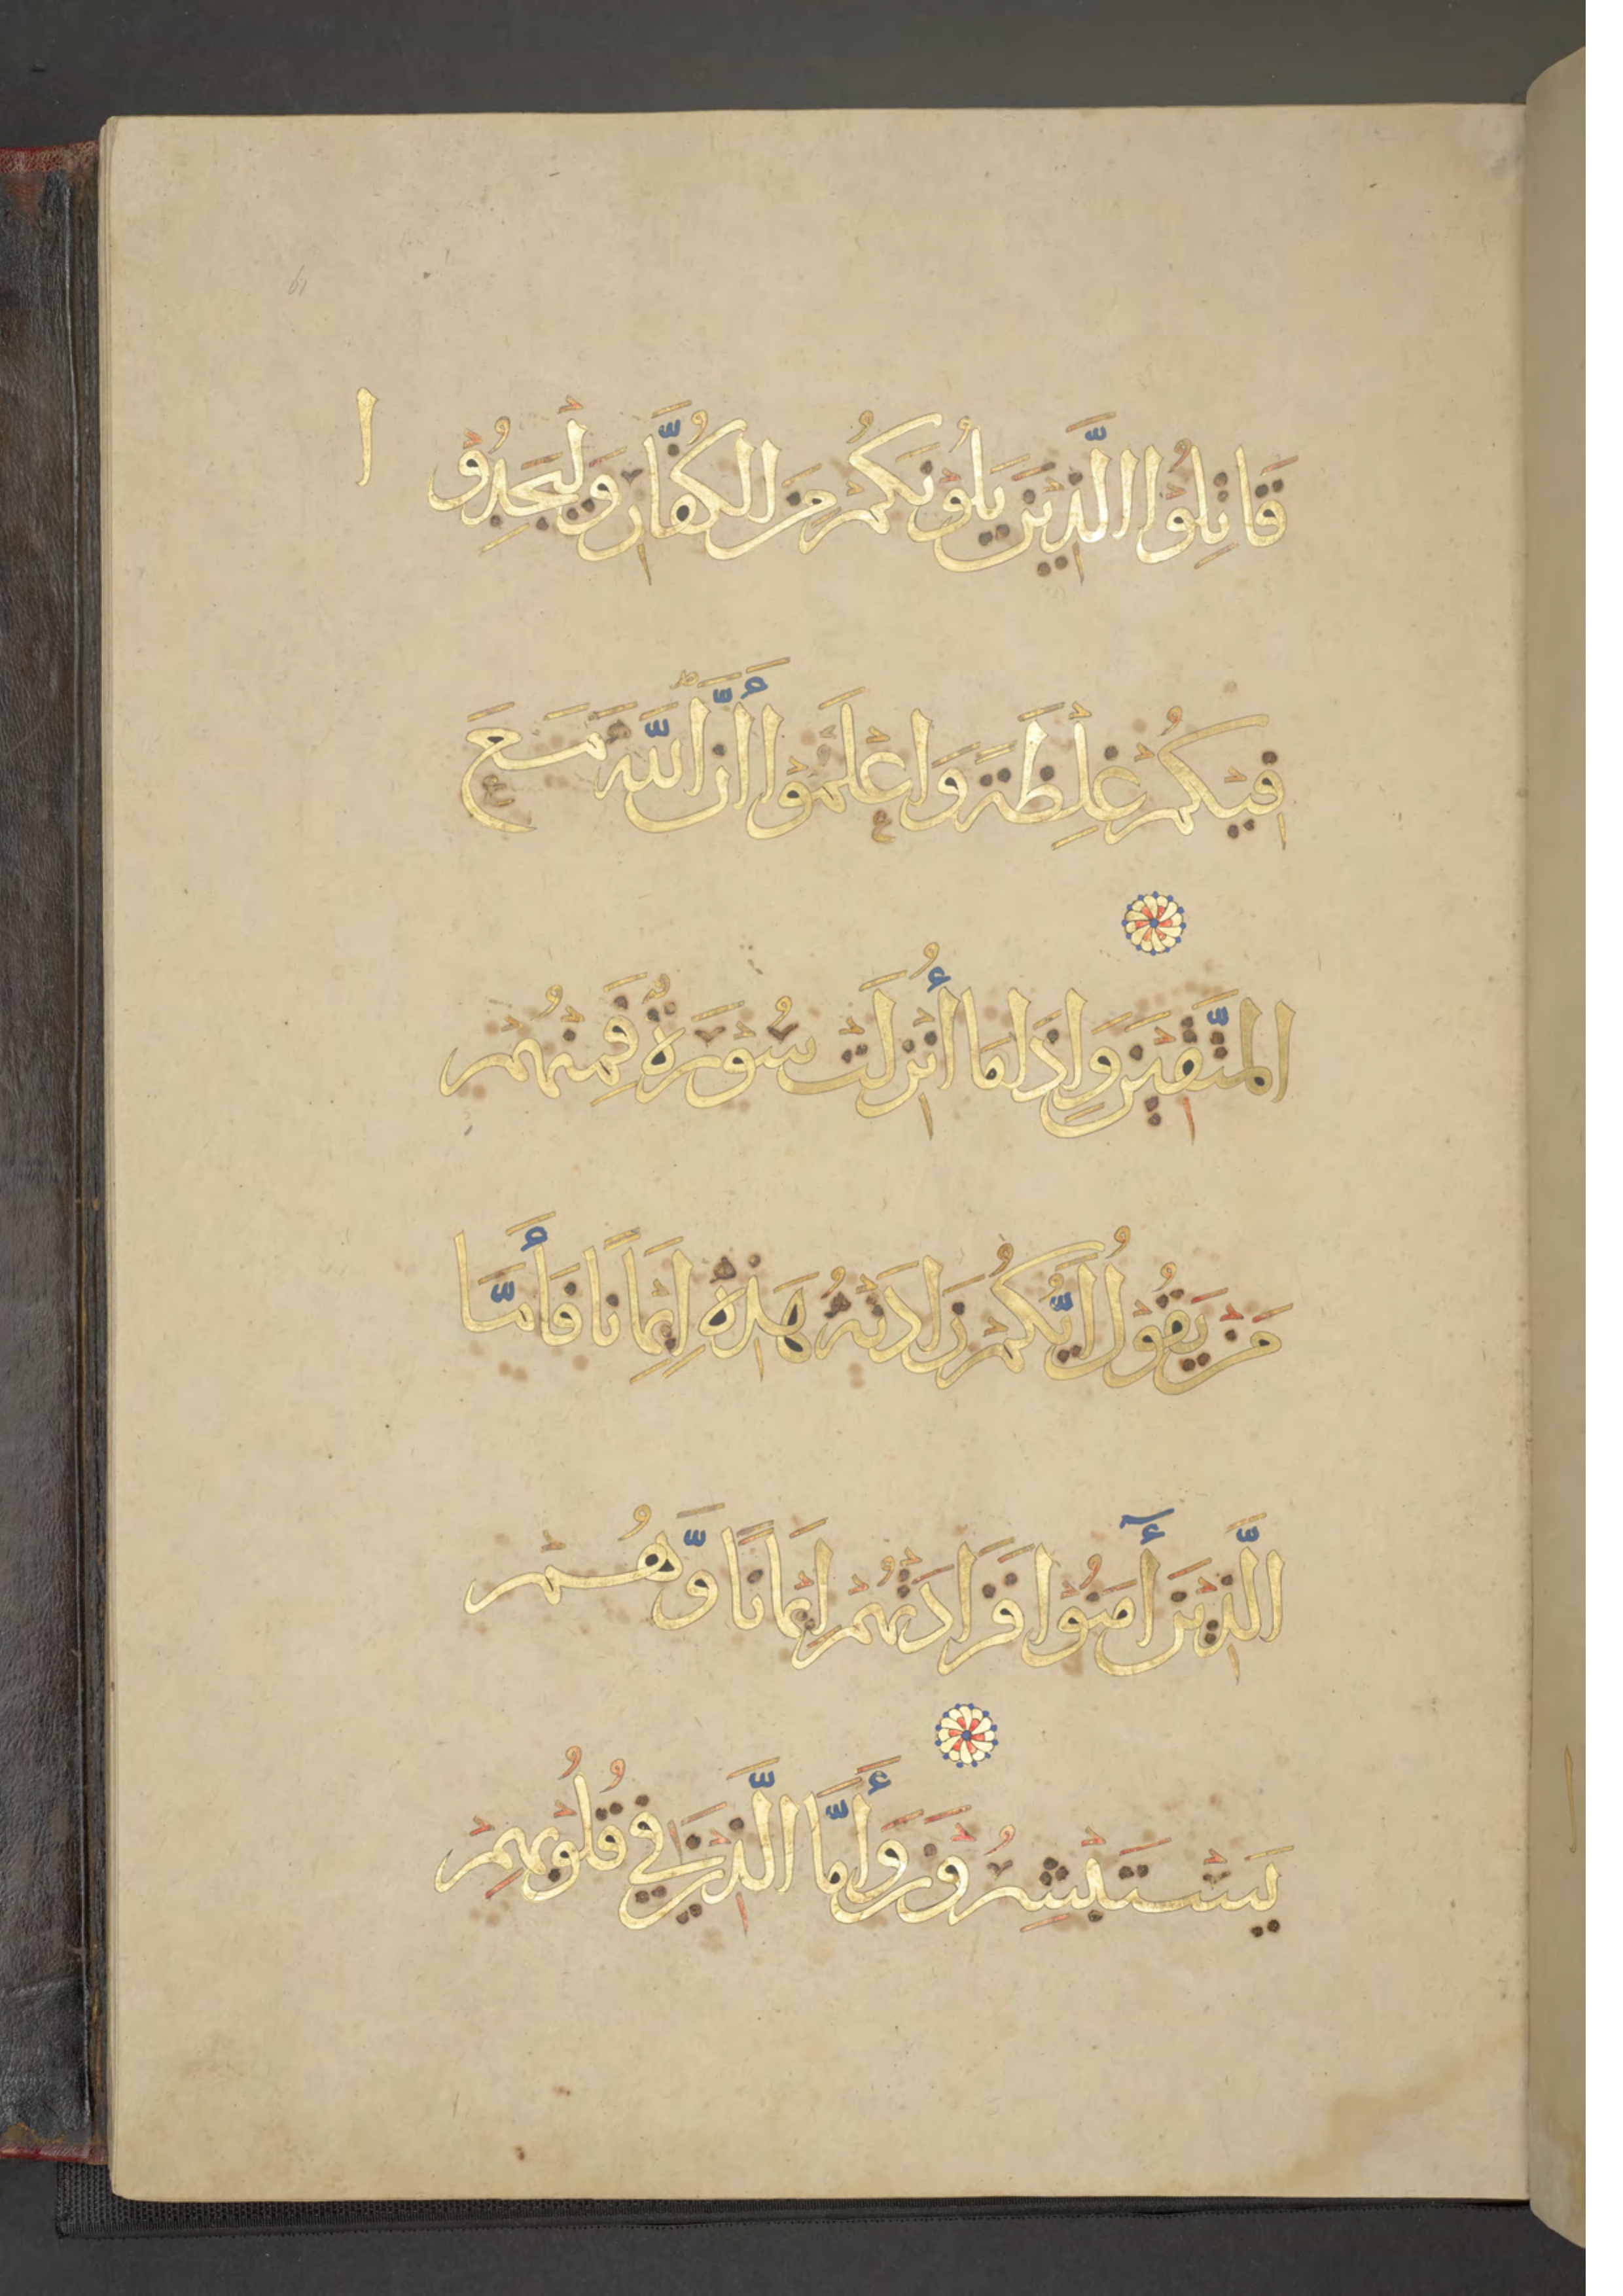 قَاتِلُوا الَّذِيْنَ يَلُوْنَكُمْ مِنَ الْكُفَّارِ وَلْيَجِدُوْا
فِيْكُمْ غِلْظَةً وَاعْلَمُوْا أَنَّ اللّٰهَ مَعَ
الْمُتَّقِيْنَ وَإِذَا مَا أُنْزِلَتْ سُوْرَةٌ فَمِنْهُمْ
مَنْ يَقُوْلُ أَيُّكُمْ زَادَتْهُ هٰذِهِ إِيْمَانًا فَأَمَّا
الَّذِيْنَ أٓمَنُوْا فَزَادَتْهُمْ إِيْمَانًا وَّهُمْ
يَسْتَبْشِرُوْنَ وَأَمَّا الَّذِيْنَ فِيْ قُلُوْبِهِمْ